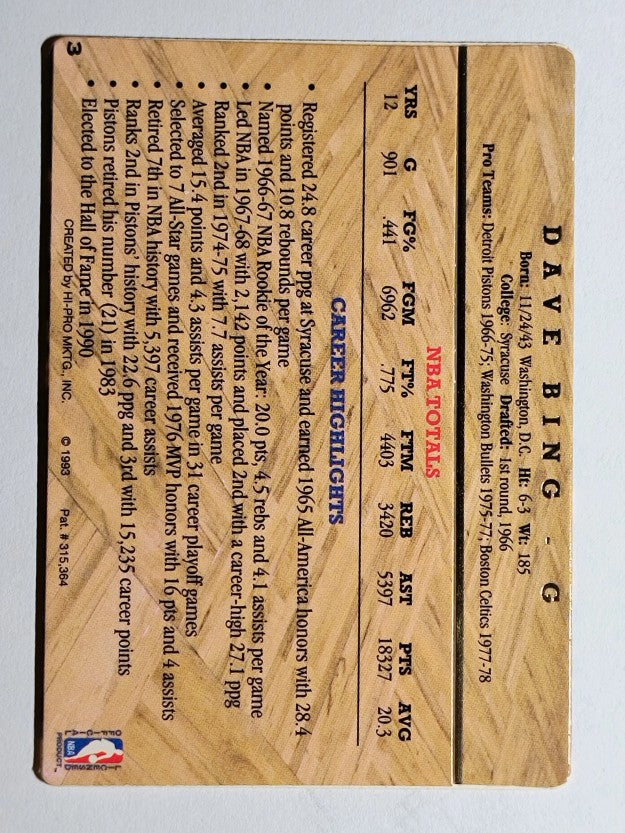 DAVE BING - G
Born: 11/24/43 Washington, D.C. Ht: 6-3 Wt: 185
College: Syracuse Drafted: 1st round, 1966
Pro Teams: Detroit Pistons 1966-75; Washington Bullets 1975-77; Boston Celtics 1977-78
NBA TOTALS
YRS G FG% FGM FT% FTM REB AST PTS AVG
12 901 .441 6962 .775 4403 3420 5397 18327 20.3
CAREER HIGHLIGHTS
• Registered 24.8 career ppg at Syracuse and earned 1965 All-America honors with 28.4
points and 10.8 rebounds per game
• Named 1966-67 NBA Rookie of the Year: 20.0 pts, 4.5 rebs and 4.1 assists per game
• Led NBA in 1967-68 with 2,142 points and placed 2nd with a career-high 27.1 ppg
• Ranked 2nd in 1974-75 with 7.7 assists per game
• Averaged 15.4 points and 4.3 assists per game in 31 career playoff games
• Selected to 7 All-Star games and received 1976 MVP honors with 16 pts and 4 assists
• Retired 7th in NBA history with 5,397 career assists
• Ranks 2nd in Pistons' history with 22.6 ppg and 3rd with 15,235 career points
• Pistons retired his number (21) in 1983
• Elected to the Hall of Fame in 1990
3
CREATED by HI-PRO MKTG. INC. © 1993 Pat. # 315,364
OFFICIAL LICENSED
NBA
PRODUCT